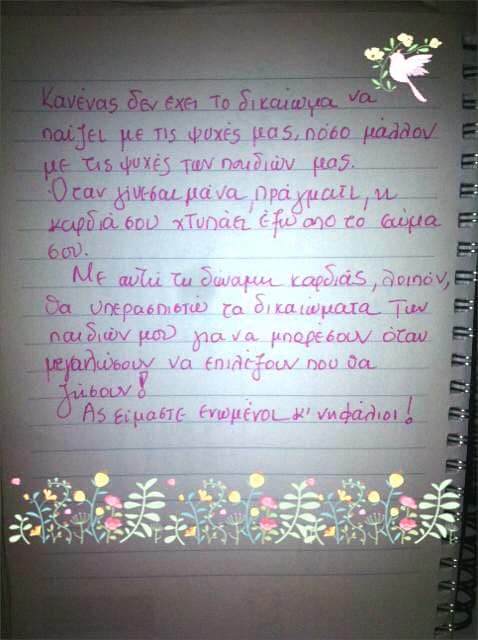 Κανένας δεν έχει το δικαίωμα να
παίζει με τις ψυχές μας, πόσο μάλλον
με τις ψυχές των παιδιών μας.
Όταν γίνεσαι μάνα, πράγματι, η
καρδιά σου χτυπάει έξω από το σώμα
σου.
Με αυτή τη δύναμη καρδιάς, λοιπόν,
θα υπερασπιστώ τα δικαιώματα των
παιδιών μου για να μπορέσουν όταν
μεγαλώσουν να επιλέξουν που θα
ζήσουν!
Ας είμαστε ενωμένοι κ' νηφάλιοι!